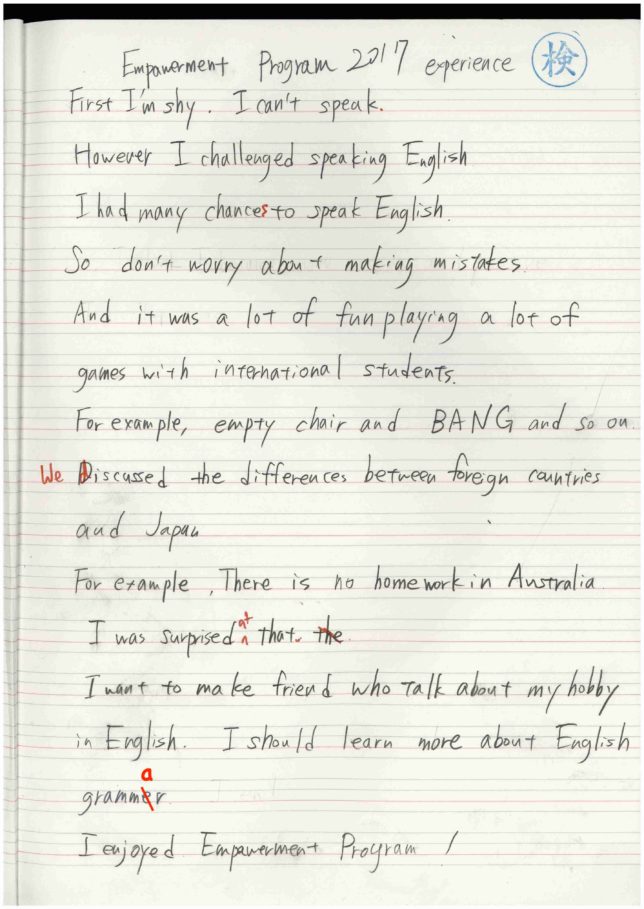 Empowerment Program 2017 experience 検
First I'm shy. I can't speak.
However I challenged speaking English
I had many chances to speak English.
So don't worry about making mistakes.
And it was a lot of fun playing a lot of
games with international students.
For example, empty chair and BANG and so on.
We discussed the differences between foreign countries
and Japan
For example, There is no homework in Australia
I was surprised at that. the
I want to make friend who talk about my hobby
in English. I should learn more about English
grammar.
I enjoyed Empowerment Program !